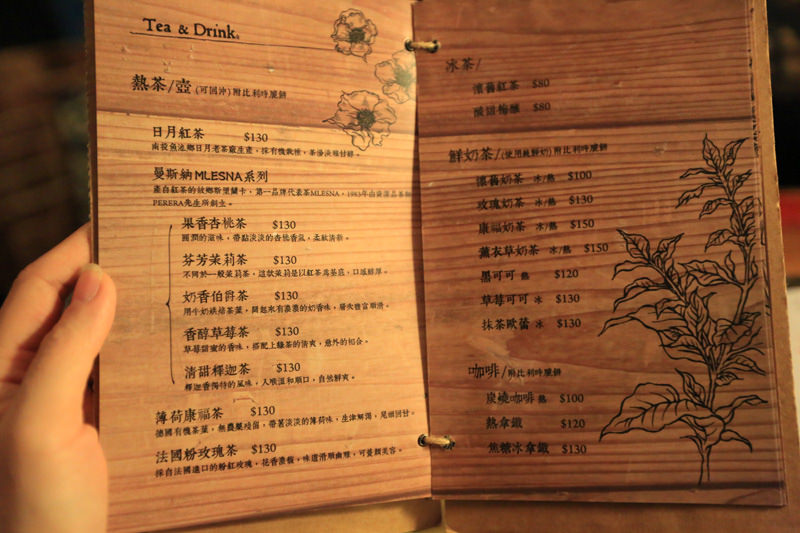 Tea & Drink.
熱茶/壺 (可回沖)附比利時脆餅
日月紅茶 $130
南投魚池鄉日月老茶廠生產，採有機栽種，茶湯淡雅甘醇。
曼斯納MLESNA系列
產自紅茶的故鄉斯里蘭卡，第一品牌代表茶MLESNA，1983年由
PERERA先生所創立。
果香杏桃茶 $130
圓潤的滋味，帶點淡淡的杏桃香氣，柔軟清新。
芬芳茉莉茶 $130
不同於一般茉莉茶，這款茉莉是以紅茶為基底，口感醇厚。
奶香伯爵茶 $130
用牛奶烘焙茶葉，聞起來有濃濃的奶香味，層次豐富順滑。
香醇草莓茶 $130
草莓甜蜜的香味，搭配上綠茶的清爽，意外的相合。
清甜釋迦茶 $130
釋迦香獨特的風味，入喉溫和順口，自然鮮爽。
薄荷康福茶 $130
德國有機茶葉，無農藥殘留，帶著淡淡的薄荷味，生津解渴，尾韻回甘。
法國粉玫瑰茶 $130
採自法國進口的粉紅玫瑰，花香濃馥，味道滑順幽雅，可養顏美容。
冰茶/
懷舊紅茶 $80
酸甜梅釀 $80
鮮奶茶/(使用純鮮奶)附比利時脆餅
懷舊奶茶 冰/熱 $100
玫瑰奶茶 冰/熱 $130
康福奶茶 冰/熱 $150
薰衣草奶茶 冰/熱 $150
黑可可 熱 $120
草莓可可 冰 $130
抹茶歐蕾 冰 $130
咖啡/附比利時脆餅
炭燒咖啡 熱 $100
熱拿鐵 $120
焦糖冰拿鐵 $130